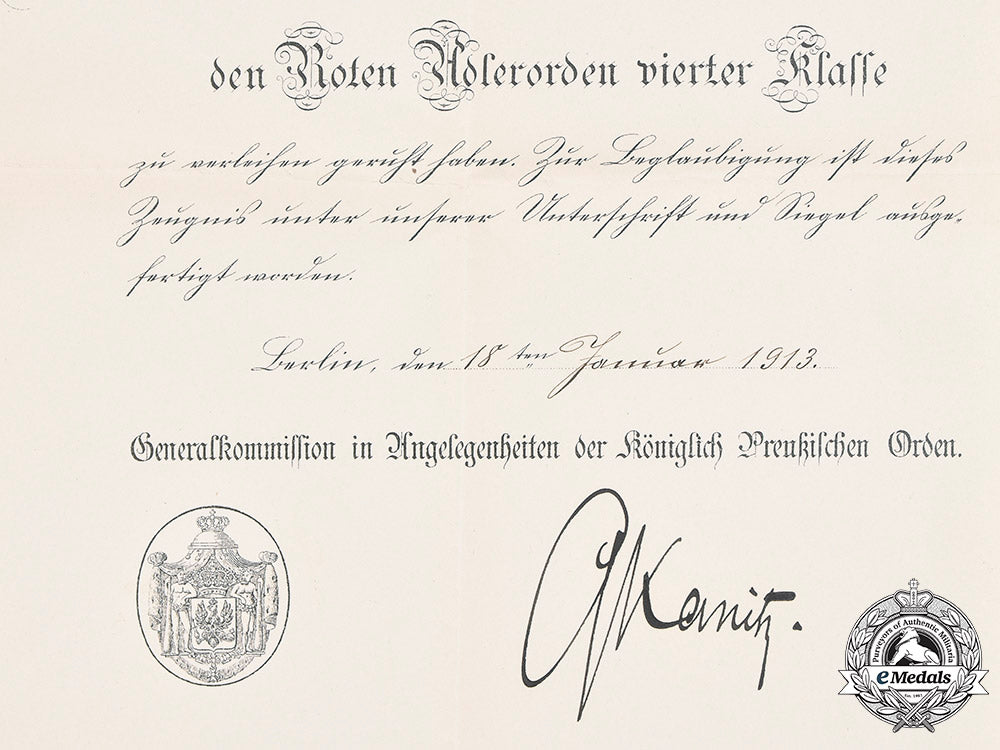 den Roten Adlerorden vierter Klasse
zu verleihen geruht haben. Zur Beglaubigung ist dieses
Zeugnis unter unserer Unterschrift und Siegel ausge-
fertigt worden.
Berlin, den 18ten Januar 1913.
Generalkommission in Angelegenheiten der Königlich Preußischen Orden.
GKanitz.
Purveyors of Authentic Militaria
eMedals